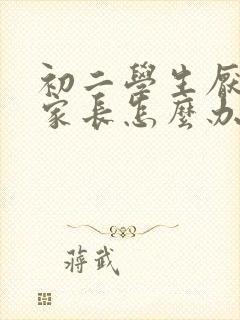 初二學生厭
家長怎麼办
蔣武